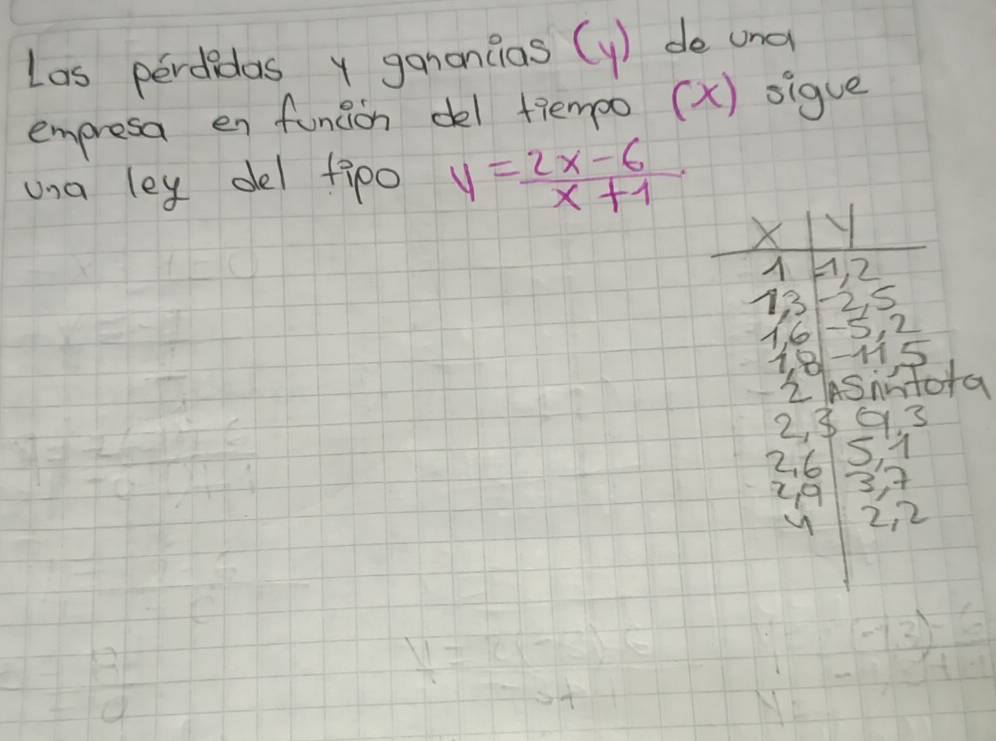 Las pérdidas y ganancias (y) de una
empresa en función del tiempo (x) sigue
una ley del tipo y = 2x - 6 / x + 1
x | y
1 | -1,2
1,3 | -2,5
1,6 | -5,2
1,8 | -11,5
2 | Asintota
2,3 | 9,3
2,6 | 5,1
2,9 | 3,7
4 | 2,2